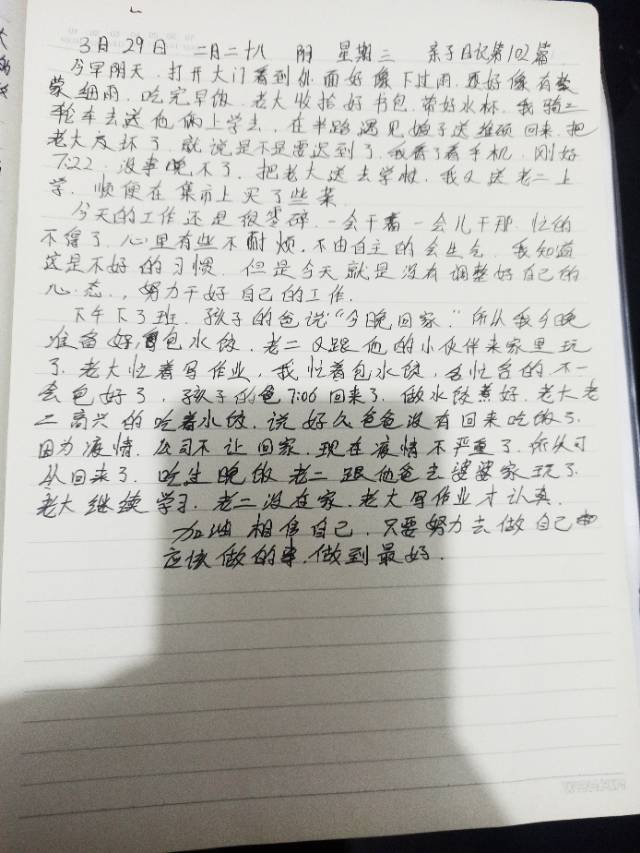 3月29日 二月二十八 阴 星期三 亲子日记第102篇
今早阴天，打开大门看到外面好像下过雨，还好像有些
蒙细雨，吃完早饭，老大收拾好书包，带好水杯，我骑二
轮车去送他俩上学去，在半路遇见嫂子送 回来，把
老大友坏了，就说是不是要迟到了，我看了看手机，刚好
7:22，没事晚不了，把老大送去学校，我又送老二上
学，顺便在集市上买了些菜。
今天的工作还是很零碎，一会干着一会儿干那，忙的
不得了，心里有些不耐烦，不由自主的会生气，我知道
这是不好的习惯，但是今天就是没有调整好自己的
心态，，努力干好自己的工作。
下午下了班，孩子的爸说“今晚回家。”所以我今晚
准备好包水饺，老二又跟他的小伙伴来家里玩
了，老大忙着写作业，我忙着包水饺，各忙各的，不一
会包好了，孩子的爸7:06回来了，做水饺煮好，老大老
二高兴的吃着水饺，说好久爸爸没有回来吃饭了，
因为疫情，公司不让回家，现在疫情不严重了，所以可
以回来了，吃过晚饭老二跟他爸去婆婆家玩了，
老大继续学习，老二没在家，老大写作业才认真。
加油相信自己，只要努力去做自己
应该做的事，做到最好。